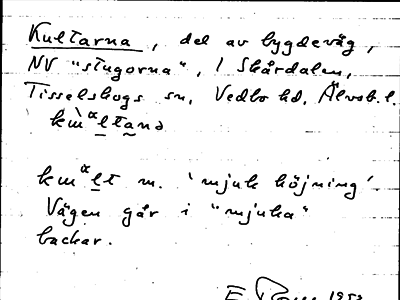 Kultarna, del av bygdeväg,
NV "stugorna", I Skårdalen,
Tisselskogs sn, Vedbo hd, Älvsb. l.
m. 'mjuk höjning'.
Vägen går i "mjuka"
backar.
1953